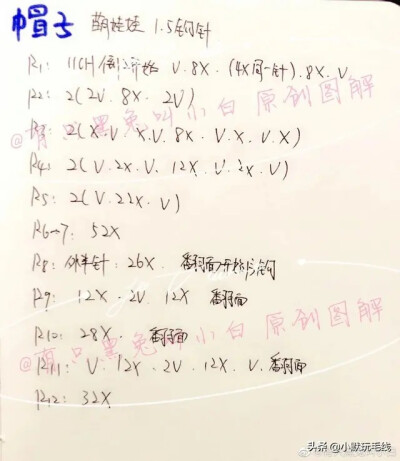 帽子 萌娃娃 1.5钩针
R1: 11CH倒2开始 V.8X.(4X同一针).8X.V
R2: 2(2V.8X.2V)
R3: 2(X.V.X.V.8X.V.X.V.X)
R4: 2(V.2X.V.12X.V.2X.V)
R5: 2(V.22X.V)
R6→7: 52X
R8: 外半针: 26X. 翻面开始片钩
R9: 12X.2V.12X 翻面
R10: 28X. 翻面
R11: V.12X.2V.12X.V.翻面
R12: 32X
@有只黑兔叫小白 原创图解
@有只黑兔叫小白 原创图解
头条 @小默玩毛线